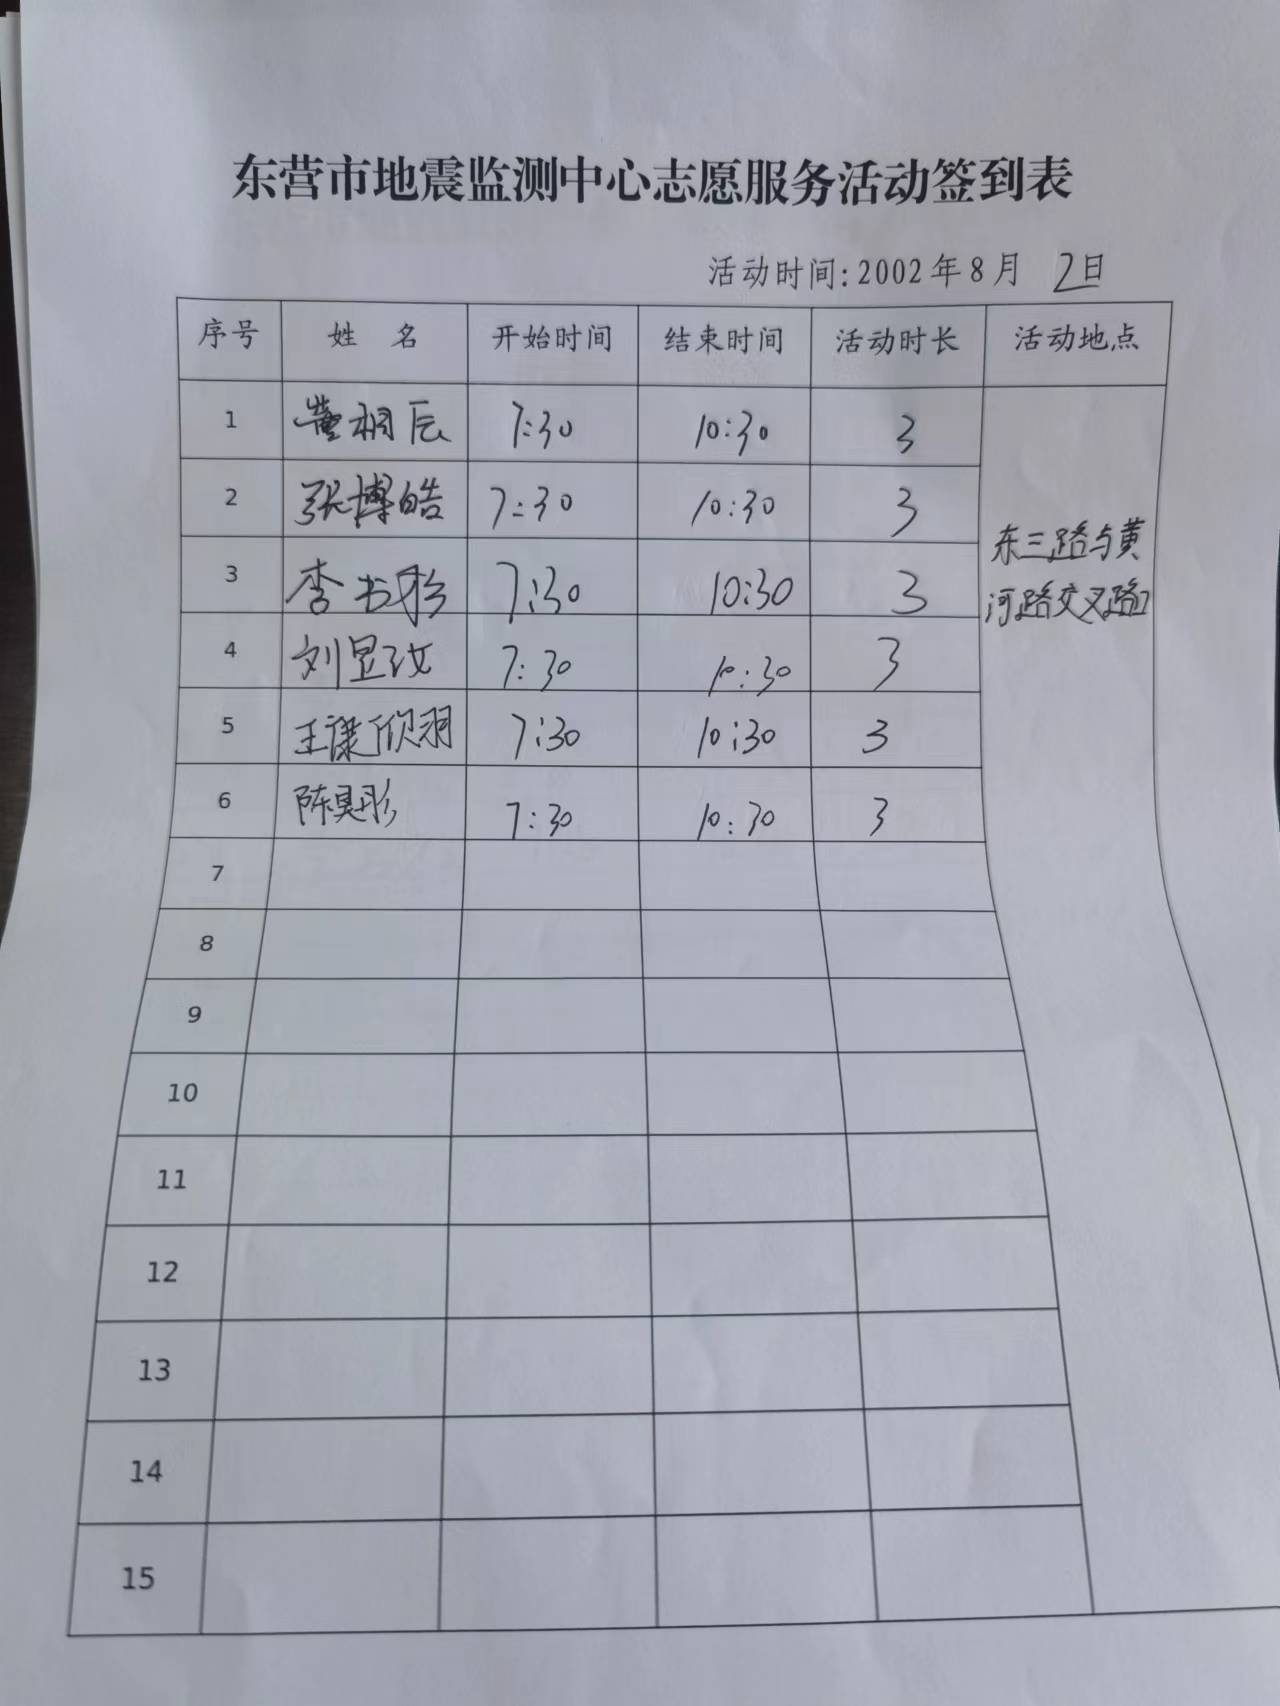 东营市地震监测中心志愿服务活动签到表
活动时间:2002年8月 2日
序号 姓 名 开始时间 结束时间 活动时长 活动地点
1 董桐辰 7:30 10:30 3
2 张博皓 7:30 10:30 3
东三路与黄
河路交叉路口
3 李书 7:30 10:30 3
4 刘昱汶 7:30 10:30 3
5 王 欣羽 7:30 10:30 3
6 陈昊彤 7:30 10:30 3
7
8
9
10
11
12
13
14
15